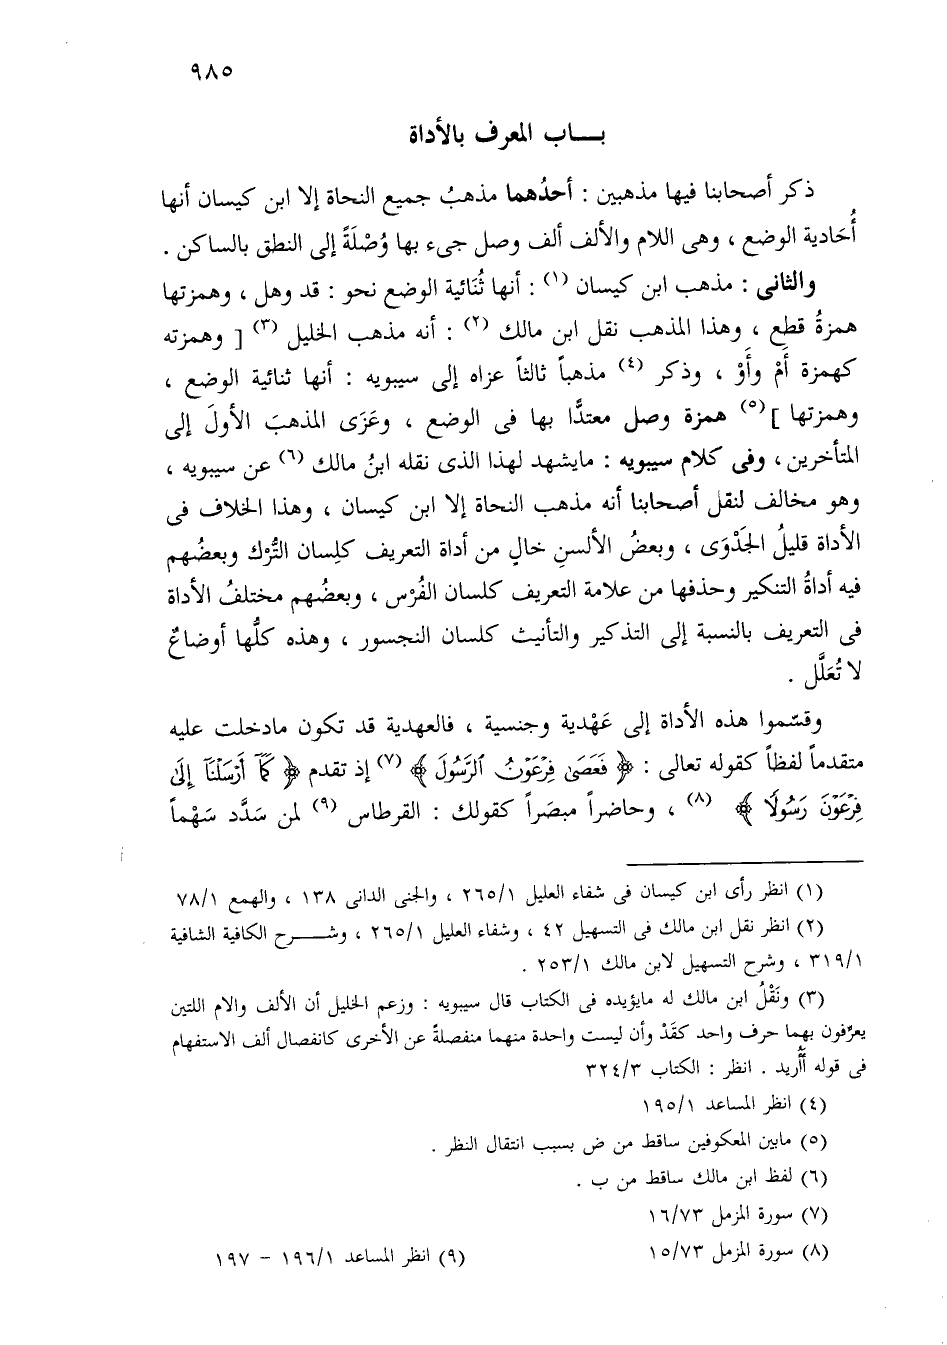 ٩٨٥
بـــاب المعرف بالأداة
ذكر أصحابنا فيها مذهبين : أحدُهما مذهبُ جميع النحاة إلا ابن كيسان أنها
أُحَادية الوضع ، وهى اللام والألف ألف وصل جىء بها وُصْلَةً إلى النطق بالساكن .
والثانى : مذهب ابن كيسان (١) : أنها ثُنَائية الوضع نحو : قد وهل ، وهمزتها
همزةُ قطع ، وهذا المذهب نقل ابن مالك (٢) : أنه مذهب الخليل (٣) [ وهمزته
كهمزة أَمْ وأَوْ ، وذكر (٤) مذهباً ثالثاً عزاه إلى سيبويه : أنها ثنائية الوضع ،
وهمزتها ] (٥) همزة وصل معتدًّا بها فى الوضع ، وعَزَى المذهبَ الأولَ إلى
المتأخرين ، وفى كلام سيبويه : مايشهد لهذا الذى نقله ابنُ مالك (٦) عن سيبويه ،
وهو مخالف لنقل أصحابنا أنه مذهب النحاة إلا ابن كيسان ، وهذا الخلاف فى
الأداة قليلُ الجَدْوَى ، وبعضُ الألسنِ خالٍ من أداة التعريف كلِسان التُّرْك وبعضُهم
فيه أداةُ التنكير وحذفها من علامة التعريف كلسان الفُرْس ، وبعضُهم مختلفُ الأداة
فى التعريف بالنسبة إلى التذكير والتأنيث كلسان النجسور ، وهذه كلُّها أوضاعٌ
لا تُعَلَّل .
وقسّموا هذه الأداة إلى عَهْدية وجنسية ، فالعهدية قد تكون مادخلت عليه
متقدماً لفظاً كقوله تعالى : ﴿ فَعَصَىٰ فِرْعَوْنُ ٱلرَّسُولَ ﴾ (٧) إذ تقدم ﴿ كَمَآ أَرْسَلْنَآ إِلَىٰ
فِرْعَوْنَ رَسُولًا ﴾ (٨) ، وحاضراً مبصَراً كقولك : القرطاس (٩) لمن سَدَّد سَهْماً
(١) انظر رأى ابن كيسان فى شفاء العليل ٢٦٥/١ ، والجنى الدانى ١٣٨ ، والهمع ٧٨/١
(٢) انظر نقل ابن مالك فى التسهيل ٤٢ ، وشفاء العليل ٢٦٥/١ ، وشـــرح الكافية الشافية
٣١٩/١ ، وشرح التسهيل لابن مالك ٢٥٣/١ .
(٣) ونَقْلُ ابن مالك له مايؤيده فى الكتاب قال سيبويه : وزعم الخليل أن الألف والام اللتين
يعرّفون بهما حرف واحد كقَدْ وأن ليست واحدة منهما منفصلةً عن الأخرى كانفصال ألف الاستفهام
فى قوله أأُريد . انظر : الكتاب ٣٢٤/٣
(٤) انظر المساعد ١٩٥/١
(٥) مابين المعكوفين ساقط من ض بسبب انتقال النظر .
(٦) لفظ ابن مالك ساقط من ب .
(٧) سورة المزمل ١٦/٧٣
(٨) سورة المزمل ١٥/٧٣ (٩) انظر المساعد ١٩٦/١ – ١٩٧